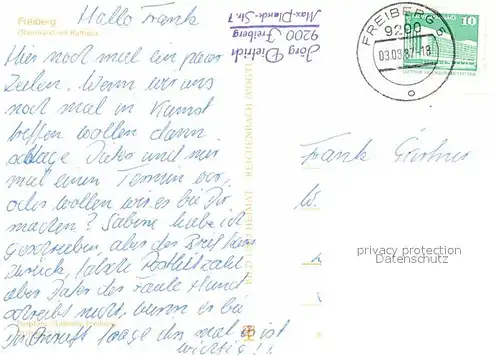 Freiberg
Obermarkt mit Rathaus
Hallo Frank
Hier noch mal ein paar
Zeilen. Wenn wir uns
noch mal in Kunst
treffen wollen dann
schlage Dieter und mir
mal einen Termin vor,
oder wollen wir es bei Dir
machen? Sabine habe ich
geschrieben aber der Brief kam
zurück, falsche Postleitzahl
aber Dieter der faule Hund
schreibt nicht, wenn es bei
Dir
frage ihn mal es ist
wichtig!!
Jörg Dietrich
9200 Freiberg
Max-Planck-Str. 7
BILD UND HEIMAT REICHENBACH (VOGTL)
FREIBERG 5
9200
03.03.87-18
10
Frank
W.
privacy protection
Datenschutz